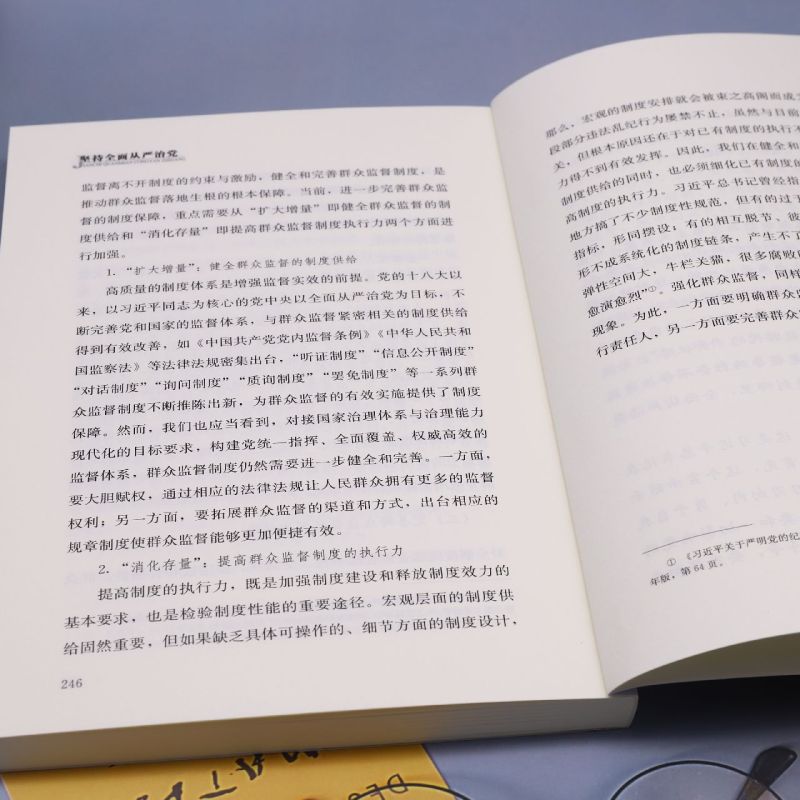 坚持全面从严治党
监督离不开制度的约束与激励，健全和完善群众监督制度，是
推动群众监督落地生根的根本保障。当前，进一步完善群众监
督的制度保障，重点需要从“扩大增量”即健全群众监督的制
度供给和“消化存量”即提高群众监督制度执行力两个方面进
行加强。
1. “扩大增量”：健全群众监督的制度供给
高质量的制度体系是增强监督实效的前提。党的十八大以
来，以习近平同志为核心的党中央以全面从严治党为目标，不
断完善党和国家的监督体系，与群众监督紧密相关的制度供给
得到有效改善，如《中国共产党党内监督条例》《中华人民共和
国监察法》等法律法规密集出台，“听证制度”“信息公开制度”
“对话制度”“询问制度”“质询制度”“罢免制度”等一系列群
众监督制度不断推陈出新，为群众监督的有效实施提供了制度
保障。然而，我们也应当看到，对接国家治理体系与治理能力
现代化的目标要求，构建党统一指挥、全面覆盖、权威高效的
监督体系，群众监督制度仍然需要进一步健全和完善。一方面，
要大胆赋权，通过相应的法律法规让人民群众拥有更多的监督
权利；另一方面，要拓展群众监督的渠道和方式，出台相应的
规章制度使群众监督能够更加便捷有效。
2. “消化存量”：提高群众监督制度的执行力
提高制度的执行力，既是加强制度建设和释放制度效力的
基本要求，也是检验制度性能的重要途径。宏观层面的制度供
给固然重要，但如果缺乏具体可操作的、细节方面的制度设计，
246
那么，宏观的制度安排就会被束之高阁而成
段部分违法乱纪行为屡禁不止，虽然与目前
关，但根本原因还在于对已有制度的执行不
力得不到有效发挥。因此，我们在健全和
制度供给的同时，也必须细化已有制度的
高制度的执行力。习近平总书记曾经指
地方搞了不少制度性规范，但有的过于
指标，形同摆设；有的相互脱节、彼
形不成系统化的制度链条，产生不了
弹性空间大，牛栏关猫，很多腐败
愈演愈烈”①。强化群众监督，同样
现象。为此，一方面要明确群众监
行责任人，另一方面要完善群众
① 《习近平关于严明党的纪
年版，第 64 页。